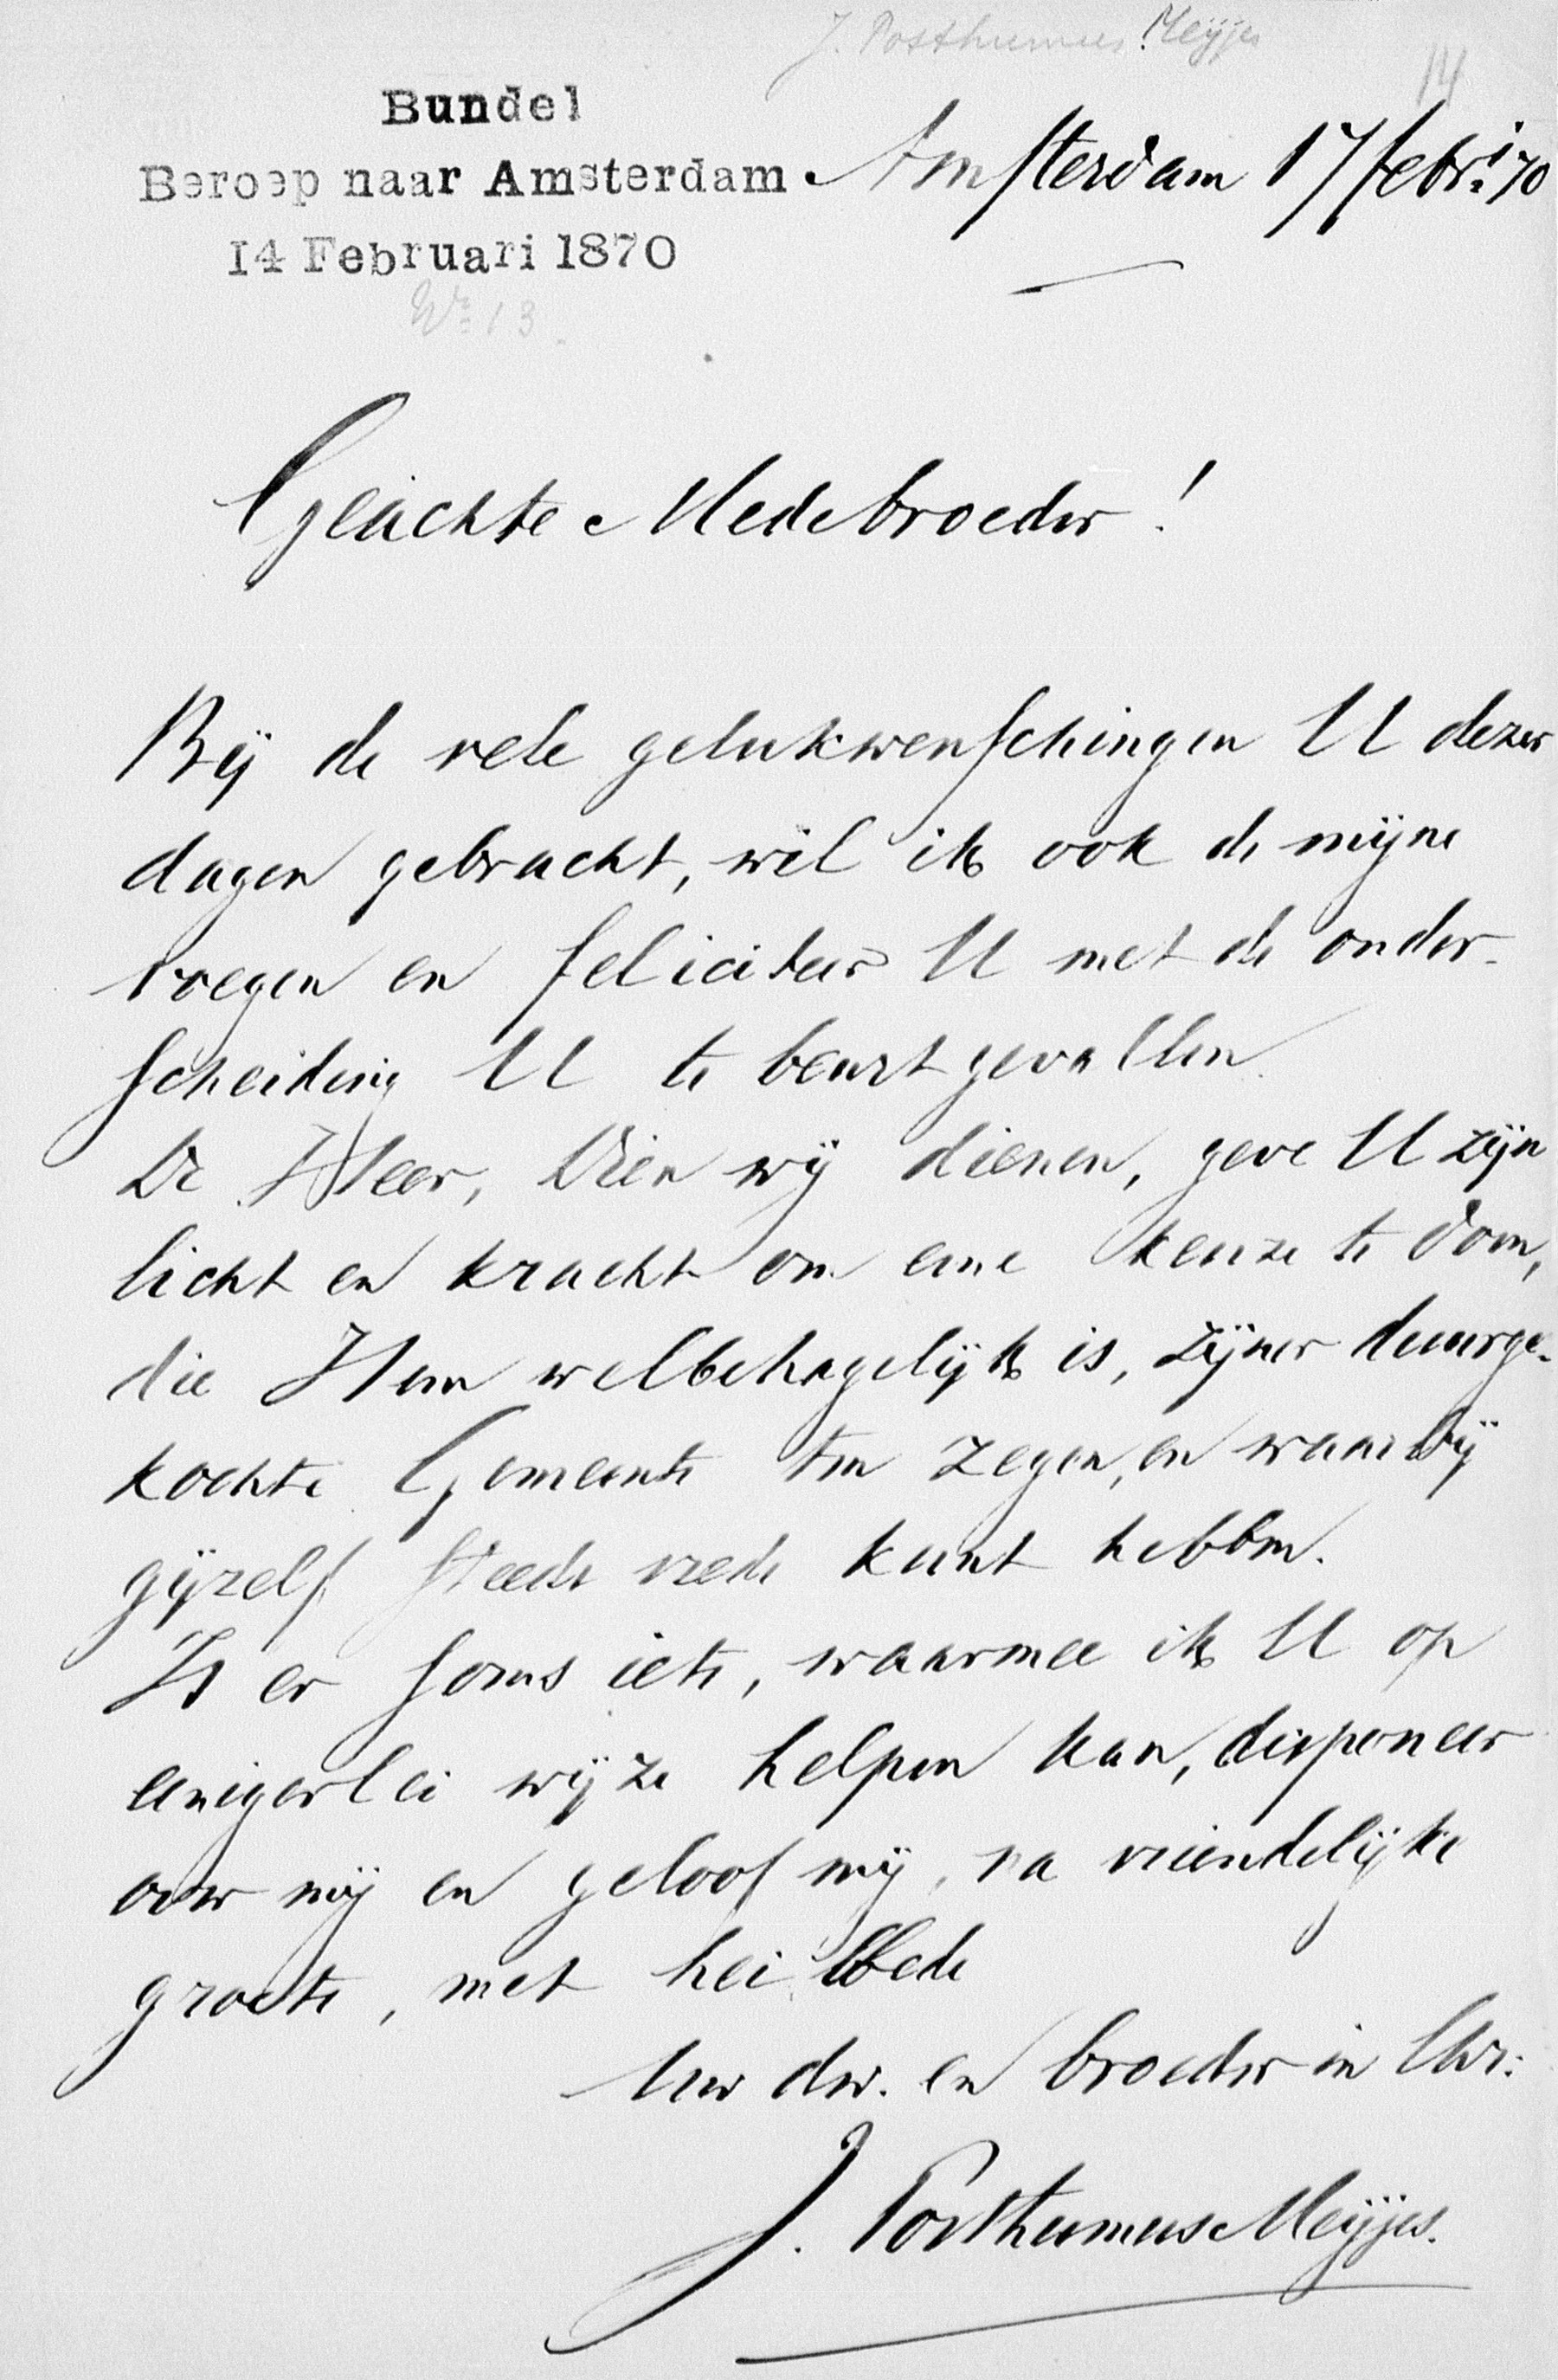 J. Posthumus Meyjes
14
Bundel
Beroep naar Amsterdam
14 Februari 1870
No 13
Amsterdam 17 febri. 70
Geachte Medebroeder!
Bij de vele gelukwenschingen U dezer
dagen gebracht, wil ik ook de mijne
voegen en feliciteer U met de onder-
scheiding U te beurt gevallen.
De Heer, Dien wij dienen, geve U zijn
licht en kracht om eene keuze te doen,
die Hem welbehagelijk is, zijner duurge-
kochte Gemeente ten zegen, en waarbij
gijzelf steeds vrede kunt hebben.
Is er soms iets, waarmee ik U op
eenigerlei wijze helpen kan, disponeer
over mij en geloof mij, na vriendelijke
groete, met heilbede
Uw dw. en broeder in Chr:
J. Posthumus Meyjes.